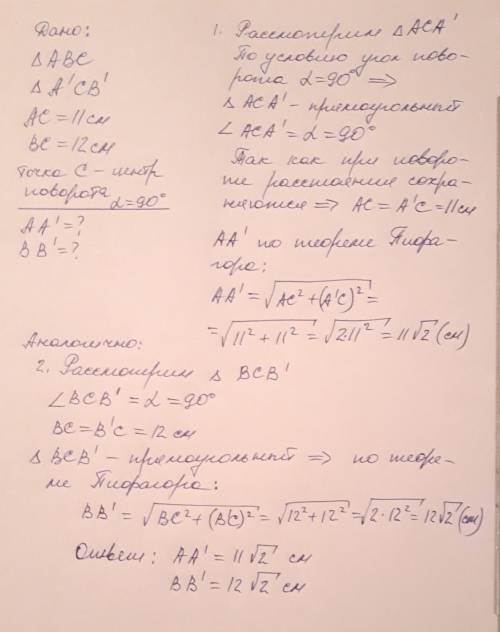 Дано:
Δ ABC
Δ A'CB'
AC = 11 см
BC = 12 см
точка C – центр
поворота α=90°
AA' = ?
BB' = ?
1. Рассмотрим Δ ACA'
По условию угол пово-
рота α = 90° ⇒
Δ ACA' – прямоугольный
∠ ACA' = α = 90°
Так как при поворо-
те расстояния сохра-
няются ⇒ AC = A'C = 11 см
AA' по теореме Пифа-
гора:
AA' = √(AC² + (A'C)²) =
= √(11² + 11²) = √(2·11²) = 11√2 (см)
Аналогично:
2. Рассмотрим Δ BCB'
∠BCB' = α = 90°
BC = B'C = 12 см
Δ BCB' – прямоугольный ⇒ по теоре-
ме Пифагора:
BB' = √(BC² + (B'C)²) = √(12² + 12²) = √(2·12²) = 12√2 (см)
Ответ: AA' = 11√2 см
BB' = 12√2 см